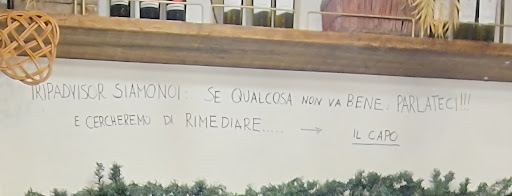 TRIPADVISOR SIAMONOI:. SE QUALCOSA NON VA BENE. PARLATECI!!!
E CERCHEREMO DI RIMEDIARE..... → IL CAPO